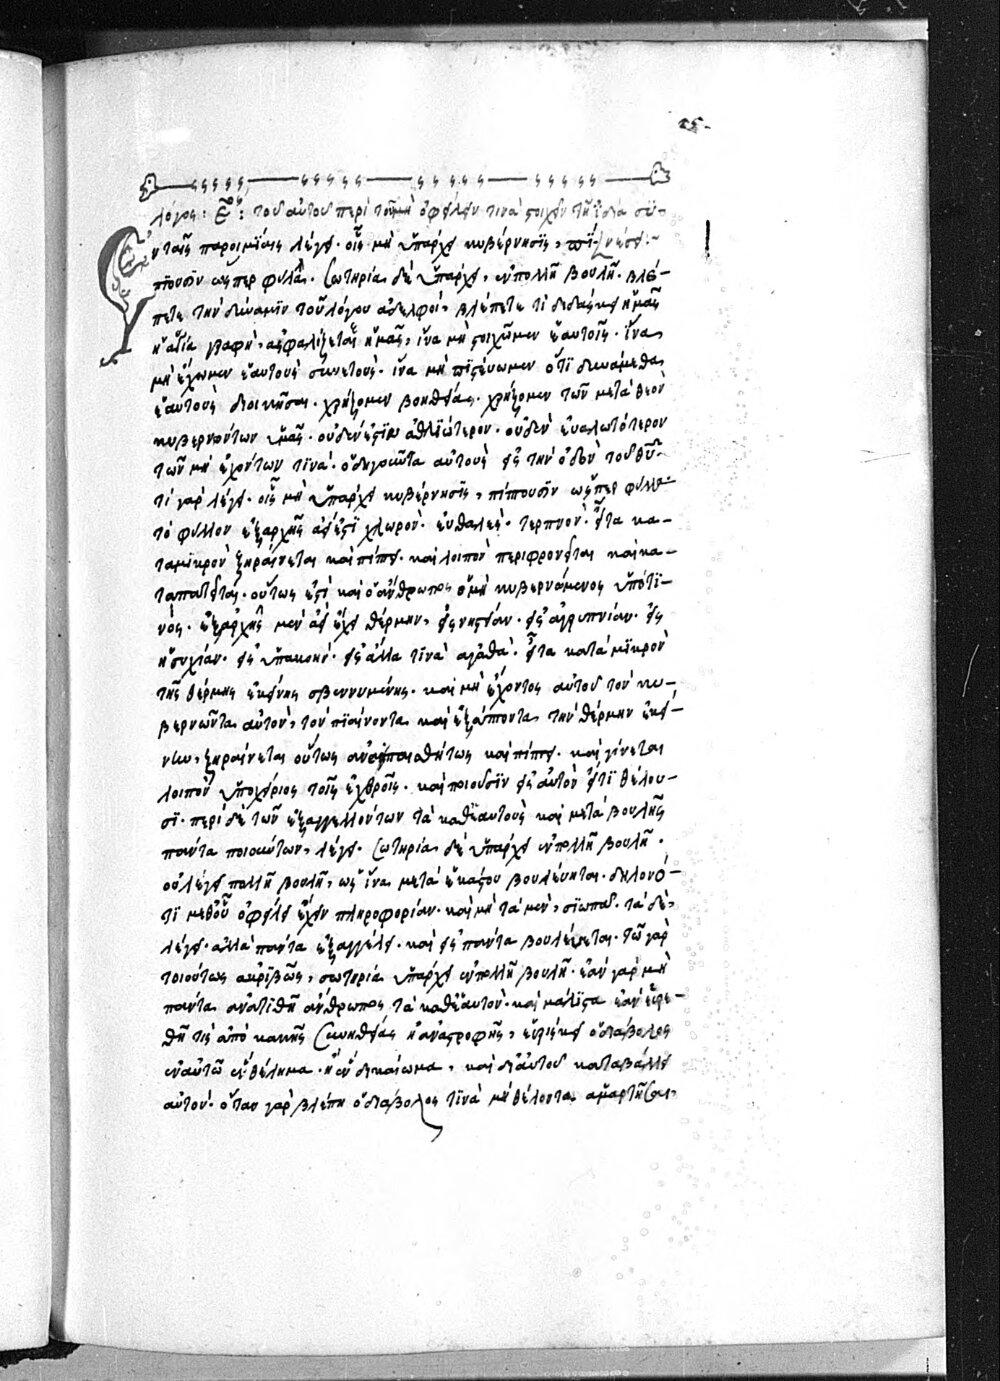 λόγος: Ε̅ος: τοῦ αὐτοῦ περὶ τοῦ μὴ ὀφείλειν τινὰ στοιχεῖν τῇ ἰδίᾳ συ-
ν ταῖς παροιμίαις λέγει· οἷς μὴ ὑπάρχει κυβέρνησις,
πτουσιν ὥσπερ φύλλα· σωτηρία δὲ ὑπάρχει, ἐν πολλῇ βουλῇ· βλέ-
πετε τὴν δύναμιν τοῦ λόγου ἀδελφοί, βλέπετε τί διδάσκει ἡμᾶς
ἡ ἁγία γραφή, ἀσφαλίζεται ἡμᾶς, ἵνα μὴ στοιχῶμεν ἑαυτοῖς· ἵνα
μὴ ἔχωμεν ἑαυτοὺς συνετούς· ἵνα μὴ πιστεύωμεν ὅτι δυνάμεθα
ἑαυτοὺς διοικῆσαι· χρῄζομεν βοηθείας· χρῄζομεν τῶν μετὰ θεὸν
κυβερνώντων ὑμᾶς· οὐδὲν ἐστὶν ἀθλιώτερον· οὐδὲν εὐαλωτότερον
τῶν μὴ ἐχόντων τινὰ ὁδηγοῦντα αὐτοὺς εἰς τὴν ὁδὸν τοῦ θῦ·
τί γὰρ λέγει· οἷς μὴ ὑπάρχει κυβέρνησις, πίπτουσιν ὥσπερ φύλλα·
τὸ φύλλον ἐξαρχῆς ἀεὶ ἐστὶ χλωρὸν· εὐθαλὲς· τερπνὸν· εἶτα κα-
ταμικρὸν ξηραίνεται καὶ πίπτει· καὶ λοιπὸν περιφρονεῖται καὶ κα-
ταπατεῖται· οὕτως ἐστὶ καὶ ὁ ἄνθρωπος ὁ μὴ κυβερνώμενος ὑπό τι-
νος· ἐξαρχῆς μὲν ἀεὶ ἔχει θέρμην, εἰς νηστείαν· εἰς ἀγρυπνίαν· εἰς
ἡσυχίαν· εἰς ὑπακοήν· εἰς ἄλλα τινὰ ἀγαθά· εἶτα κατὰ μικρὸν
τῆς θέρμης ἐκείνης σβεννυμένης· καὶ μὴ ἔχοντος αὐτοῦ τὸν κυ-
βερνῶντα αὐτόν, τὸν πιαίνοντα καὶ ἐξάπτοντα τὴν θέρμην ἐκεί-
νην, ξηραίνεται οὕτως ἀνεπαισθήτως καὶ πίπτει· καὶ γίνεται
λοιπὸν ὑποχείριος τοῖς ἐχθροῖς· καὶ ποιοῦσιν εἰς αὐτὸν εἴτι θέλου-
σι· περὶ δὲ τῶν ἐξαγγελλόντων τὰ καθεαυτοὺς καὶ μετὰ βουλῆς
πάντα ποιούντων, λέγει· σωτηρία δὲ ὑπάρχει ἐν πολλῇ βουλῇ·
οὐ λέγει πολλῇ βουλῇ, ὡς ἵνα μετὰ ἑκάστου βουλεύηται· δηλονό-
τι μεθοῦ ὀφείλει ἔχειν πληροφορίαν· καὶ μὴ τὰ μὲν, σιωπᾶν· τὰ δὲ,
λέγει· ἀλλὰ πάντα ἐξαγγέλλει· καὶ εἰς πάντα βουλεύεται· τῷ γὰρ
τοιούτως ἀκριβῶς, σωτηρία ὑπάρχει ἐν πολλῇ βουλῇ· ἐὰν γὰρ μὴ
πάντα ἀνατιθῇ ἄνθρωπος τὰ καθεαυτόν· καὶ μάλιστα ἐὰν εὑρε-
θῇ τις ἀπὸ κακῆς συνηθείας ἢ ἀναστροφῆς, εὑρίσκει ὁ διάβολος
ἐν αὐτῷ ἓν θέλημα· ἢ ἓν δικαίωμα, καὶ δι αὐτοῦ καταβάλλει
αὐτόν· ὅταν γὰρ βλέπῃ ὁ διάβολος τινὰ μὴ θέλοντα ἁμαρτῆσαι,